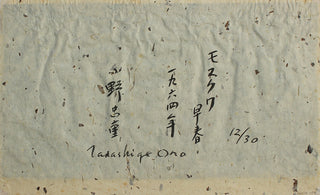 モスクワ
早春
一九六四年
12/30
小野忠重
Tadashige Ono